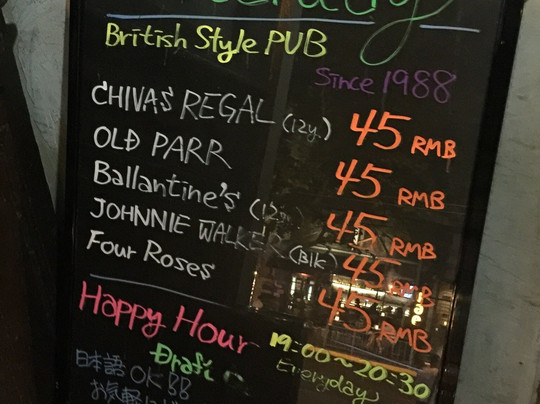 British Style PUB
Since 1988
CHIVAS REGAL (12y.) 45 RMB
OLD PARR 45 RMB
Ballantine's (12y.) 45 RMB
JOHNNIE WALKER (Blk) 45 RMB
Four Roses 45 RMB
Happy Hour 19:00~20:30
Everyday
日本語 OK